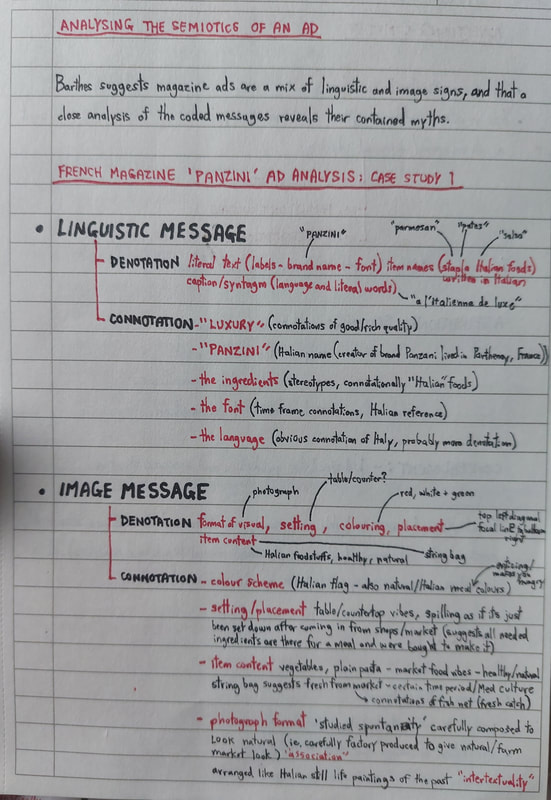 ANALYSING THE SEMIOTICS OF AN AD
Barthes suggests magazine ads are a mix of linguistic and image signs, and that a
close analysis of the coded messages reveals their contained myths.
FRENCH MAGAZINE 'PANZINI' AD ANALYSIS: CASE STUDY 1
• LINGUISTIC MESSAGE
"PANZINI"
"parmesan" "pates" "salsa"
DENOTATION literal text (labels - brand name - font) item names (staple Italian foods)
written in Italian
caption/syntagm (language and literal words)
"a l'Italienne de luxe"
CONNOTATION - "LUXURY" (connotations of good/rich quality)
- "PANZINI" (Italian name (creator of brand Panzani lived in Parthenay, France))
- the ingredients (stereotypes, connotationally "Italian" foods)
- the font (time frame connotations, Italian reference)
- the language (obvious connotation of Italy, probably more denotation)
• IMAGE MESSAGE
photograph
table/counter?
red, white + green
DENOTATION format of visual, setting, colouring, placement
top left diagonal
focal line bottom
right
item content
Italian foodstuffs, healthy, natural
string bag
enticing/
makes you
hungry
CONNOTATION - colour scheme (Italian flag - also natural/Italian meal colours)
- setting/placement table/countertop vibes, spilling as if its just
been set down after coming in from shops/market (suggests all needed
ingredients are there for a meal and were bought to make it)
- item content vegetables, plain pasta - market food vibes - healthy/natural
string bag suggests fresh from market - certain time period/Med culture
connotations of fish net (fresh catch)
- photograph format 'studied spontaneity' carefully composed to
look natural (ie, carefully factory produced to give natural/farm
market look) "association"
arranged like Italian still life paintings of the past "intertextuality"